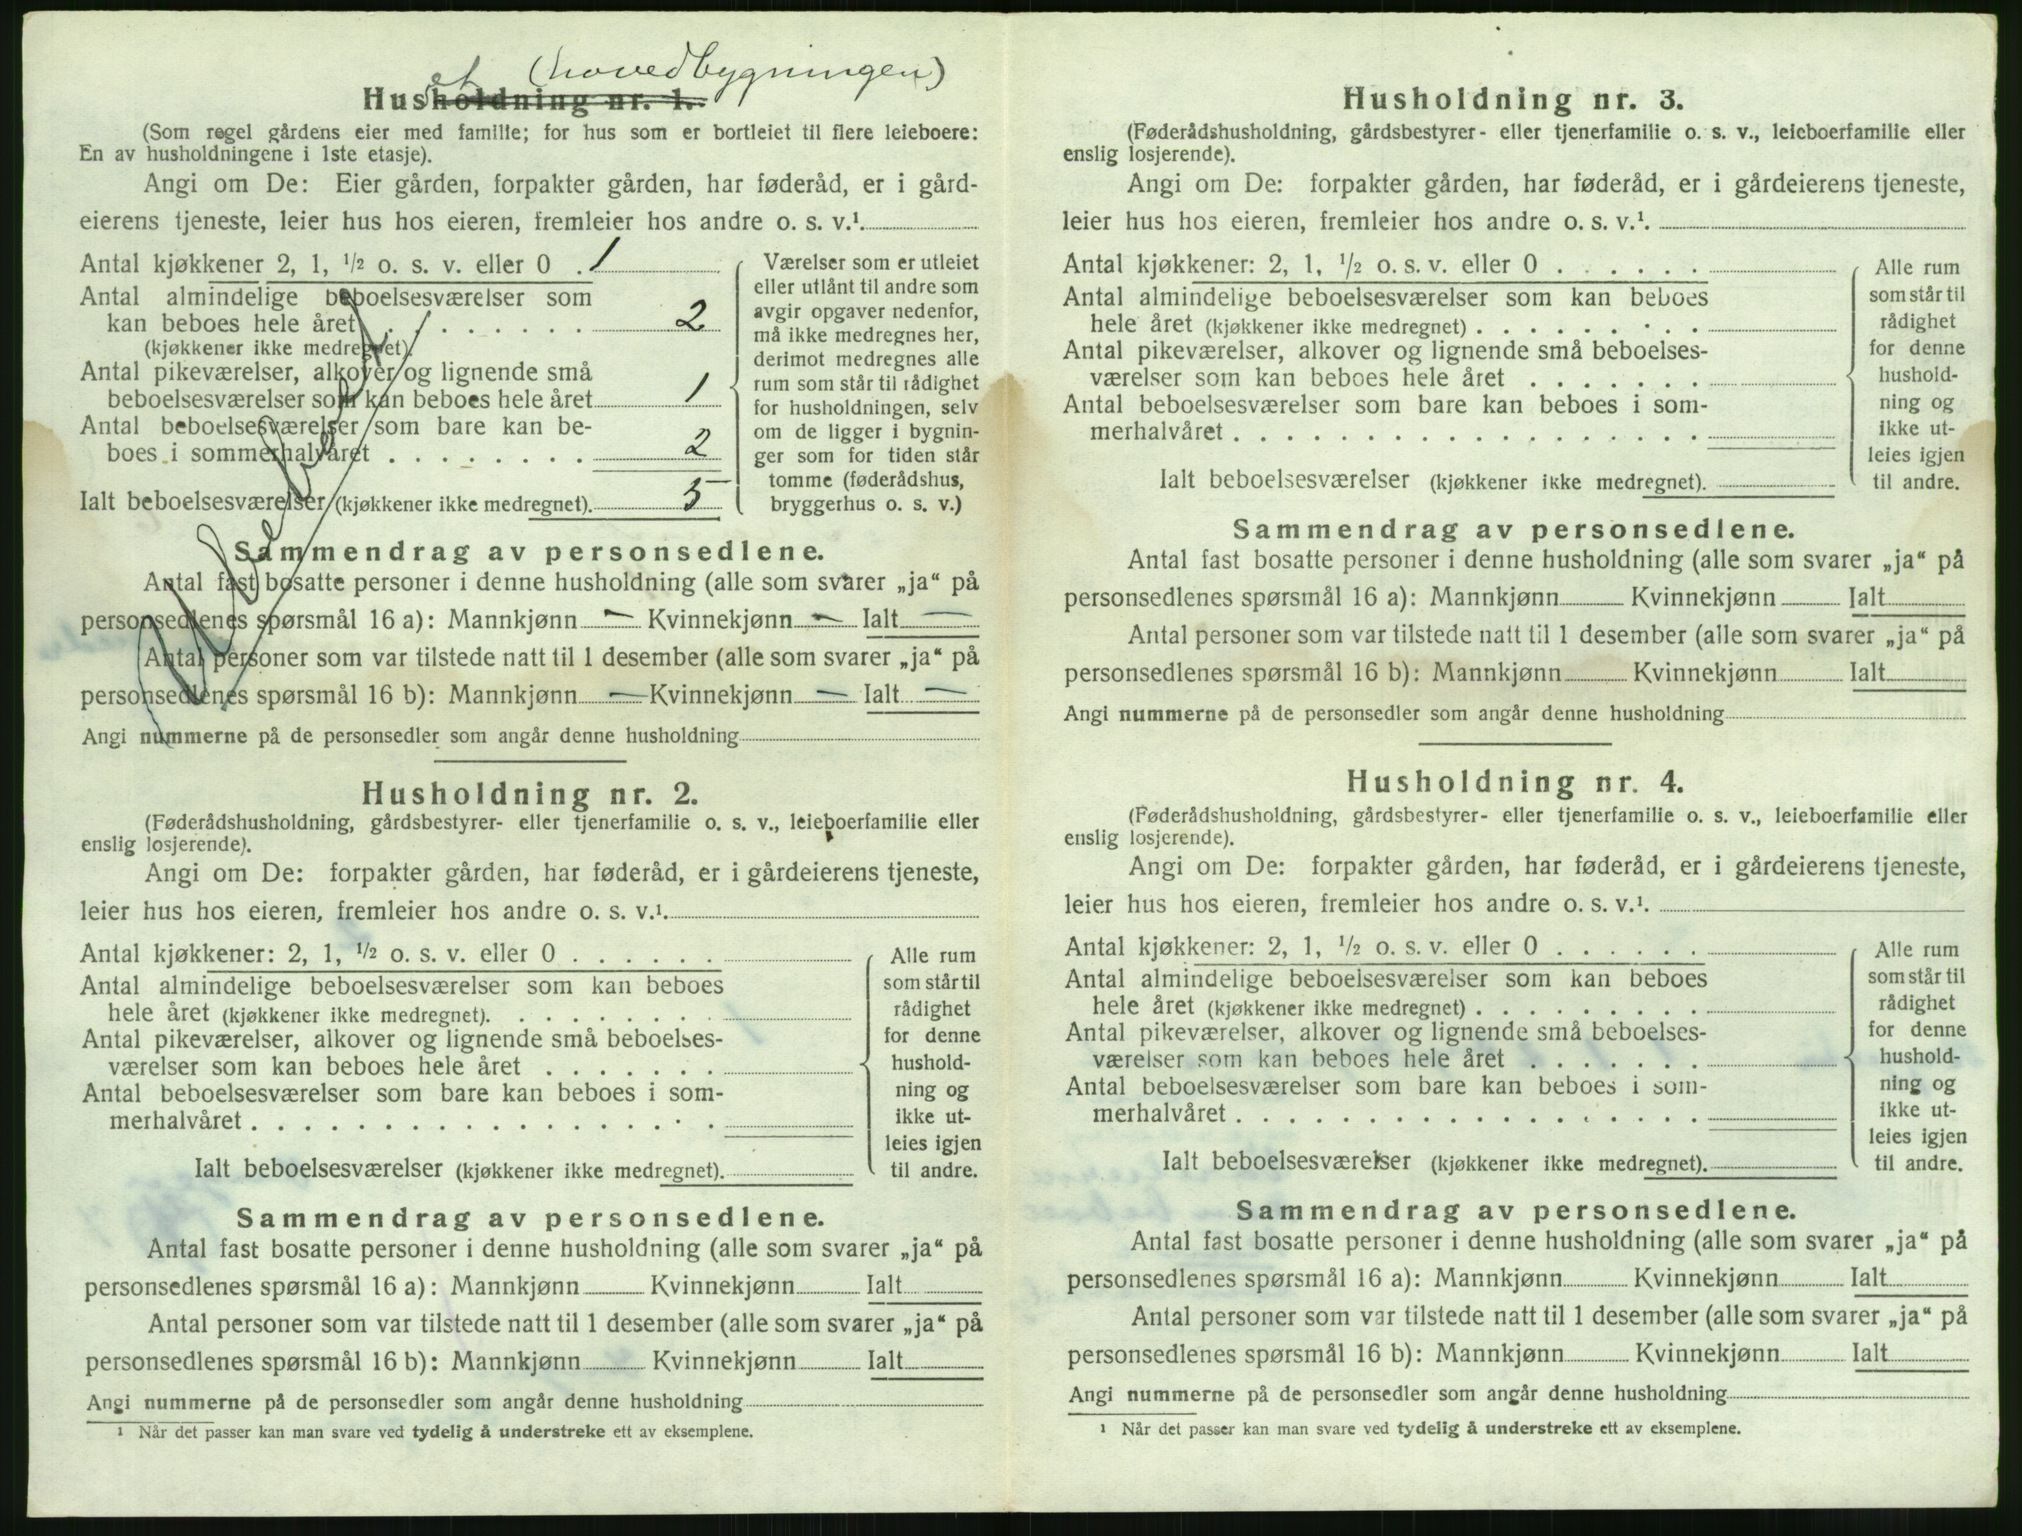 (hovedbygningen)
Huset
holdning nr. 1.
(Som regel gårdens eier med familie; for hus som er bortleiet til flere leieboere:
En av husholdningene i 1ste etasje).
Angi om De: Eier gården, forpakter gården, har føderåd, er i gård-
eierens tjeneste, leier hus hos eieren, fremleier hos andre o. s. v.¹
Antal kjøkkener 2, 1, ½ o. s. v. eller 0 . 1
Antal almindelige beboelsesværelser som
kan beboes hele året . . . . . . . . 2
(kjøkkener ikke medregnet).
Antal pikeværelser, alkover og lignende små
beboelsesværelser som kan beboes hele året 1
Antal beboelsesværelser som bare kan be-
boes i sommerhalvåret . . . . . . . . 2
Ialt beboelsesværelser (kjøkkener ikke medregnet). 5
Ubeboet
Værelser som er utleiet
eller utlånt til andre som
avgir opgaver nedenfor,
må ikke medregnes her,
derimot medregnes alle
rum som står til rådighet
for husholdningen, selv
om de ligger i bygnin-
ger som for tiden står
tomme (føderådshus,
bryggerhus o. s. v.)
Sammendrag av personsedlene.
Antal fast bosatte personer i denne husholdning (alle som svarer „ja“ på
personsedlenes spørsmål 16 a): Mannkjønn — Kvinnekjønn — Ialt —
Antal personer som var tilstede natt til 1 desember (alle som svarer „ja“ på
personsedlenes spørsmål 16 b): Mannkjønn — Kvinnekjønn — Ialt —
Angi nummerne på de personsedler som angår denne husholdning
Husholdning nr. 2.
(Føderådshusholdning, gårdsbestyrer- eller tjenerfamilie o. s. v., leieboerfamilie eller
enslig losjerende).
Angi om De: forpakter gården, har føderåd, er i gårdeierens tjeneste,
leier hus hos eieren, fremleier hos andre o. s. v.¹.
Antal kjøkkener: 2, 1, ½ o. s. v. eller 0 . . . . . .
Antal almindelige beboelsesværelser som kan beboes
hele året (kjøkkener ikke medregnet). . . . . . . . .
Antal pikeværelser, alkover og lignende små beboelses-
værelser som kan beboes hele året . . . . . . .
Antal beboelsesværelser som bare kan beboes i som-
merhalvåret . . . . . . . . . . . . . . . . . .
Ialt beboelsesværelser (kjøkkener ikke medregnet).
Alle rum
som står til
rådighet
for denne
hushold-
ning og
ikke ut-
leies igjen
til andre.
Sammendrag av personsedlene.
Antal fast bosatte personer i denne husholdning (alle som svarer „ja“ på
personsedlenes spørsmål 16 a): Mannkjønn Kvinnekjønn Ialt
Antal personer som var tilstede natt til 1 desember (alle som svarer „ja“ på
personsedlenes spørsmål 16 b): Mannkjønn Kvinnekjønn Ialt
Angi nummerne på de personsedler som angår denne husholdning
¹ Når det passer kan man svare ved tydelig å understreke ett av eksemplene.
Husholdning nr. 3.
(Føderådshusholdning, gårdsbestyrer- eller tjenerfamilie o. s. v., leieboerfamilie eller
enslig losjerende).
Angi om De: forpakter gården, har føderåd, er i gårdeierens tjeneste,
leier hus hos eieren, fremleier hos andre o. s. v.¹.
Antal kjøkkener: 2, 1, ½ o. s. v. eller 0 . . . . . .
Antal almindelige beboelsesværelser som kan beboes
hele året (kjøkkener ikke medregnet) . . . . . . . . .
Antal pikeværelser, alkover og lignende små beboelses-
værelser som kan beboes hele året . . . . . . .
Antal beboelsesværelser som bare kan beboes i som-
merhalvåret . . . . . . . . . . . . . . . . . .
Ialt beboelsesværelser (kjøkkener ikke medregnet).
Alle rum
som står til
rådighet
for denne
hushold-
ning og
ikke ut-
leies igjen
til andre.
Sammendrag av personsedlene.
Antal fast bosatte personer i denne husholdning (alle som svarer „ja“ på
personsedlenes spørsmål 16 a): Mannkjønn Kvinnekjønn Ialt
Antal personer som var tilstede natt til 1 desember (alle som svarer „ja“ på
personsedlenes spørsmål 16 b): Mannkjønn Kvinnekjønn Ialt
Angi nummerne på de personsedler som angår denne husholdning
Husholdning nr. 4.
(Føderådshusholdning, gårdsbestyrer- eller tjenerfamilie o. s. v., leieboerfamilie eller
enslig losjerende).
Angi om De: forpakter gården, har føderåd, er i gårdeierens tjeneste,
leier hus hos eieren, fremleier hos andre o. s. v.¹.
Antal kjøkkener: 2, 1, ½ o. s. v. eller 0 . . . . . .
Antal almindelige beboelsesværelser som kan beboes
hele året (kjøkkener ikke medregnet) . . . . . . . . .
Antal pikeværelser, alkover og lignende små beboelses-
værelser som kan beboes hele året . . . . . . .
Antal beboelsesværelser som bare kan beboes i som-
merhalvåret . . . . . . . . . . . . . . . . . .
Ialt beboelsesværelser (kjøkkener ikke medregnet).
Alle rum
som står til
rådighet
for denne
hushold-
ning og
ikke ut-
leies igjen
til andre.
Sammendrag av personsedlene.
Antal fast bosatte personer i denne husholdning (alle som svarer „ja“ på
personsedlenes spørsmål 16 a): Mannkjønn Kvinnekjønn Ialt
Antal personer som var tilstede natt til 1 desember (alle som svarer „ja“ på
personsedlenes spørsmål 16 b): Mannkjønn Kvinnekjønn Ialt
Angi nummerne på de personsedler som angår denne husholdning
¹ Når det passer kan man svare ved tydelig å understreke ett av eksemplene.